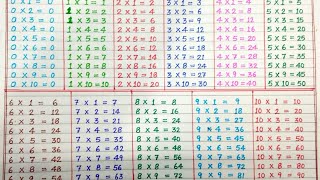 0 X 1 = 0 1 X 1 = 1 2 X 1 = 2 3 X 1 = 3 4 X 1 = 4 5 X 1 = 5
0 X 2 = 0 1 X 2 = 2 2 X 2 = 4 3 X 2 = 6 4 X 2 = 8 5 X 2 = 10
0 X 3 = 0 1 X 3 = 3 2 X 3 = 6 3 X 3 = 9 4 X 3 = 12 5 X 3 = 15
0 X 4 = 0 1 X 4 = 4 2 X 4 = 8 3 X 4 = 12 4 X 4 = 16 5 X 4 = 20
0 X 5 = 0 1 X 5 = 5 2 X 5 = 10 3 X 5 = 15 4 X 5 = 20 5 X 5 = 25
0 X 6 = 0 1 X 6 = 6 2 X 6 = 12 3 X 6 = 18 4 X 6 = 24 5 X 6 = 30
0 X 7 = 0 1 X 7 = 7 2 X 7 = 14 3 X 7 = 21 4 X 7 = 28 5 X 7 = 35
0 X 8 = 0 1 X 8 = 8 2 X 8 = 16 3 X 8 = 24 4 X 8 = 32 5 X 8 = 40
0 X 9 = 0 1 X 9 = 9 2 X 9 = 18 3 X 9 = 27 4 X 9 = 36 5 X 9 = 45
0 X 10 = 0 1 X 10 = 10 2 X 10 = 20 3 X 10 = 30 4 X 10 = 40 5 X 10 = 50
6 X 1 = 6 7 X 1 = 7 8 X 1 = 8 9 X 1 = 9 10 X 1 = 10
6 X 2 = 12 7 X 2 = 14 8 X 2 = 16 9 X 2 = 18 10 X 2 = 20
6 X 3 = 18 7 X 3 = 21 8 X 3 = 24 9 X 3 = 27 10 X 3 = 30
6 X 4 = 24 7 X 4 = 28 8 X 4 = 32 9 X 4 = 36 10 X 4 = 40
6 X 5 = 30 7 X 5 = 35 8 X 5 = 40 9 X 5 = 45 10 X 5 = 50
6 X 6 = 36 7 X 6 = 42 8 X 6 = 48 9 X 6 = 54 10 X 6 = 60
6 X 7 = 42 7 X 7 = 49 8 X 7 = 56 9 X 7 = 63 10 X 7 = 70
6 X 8 = 48 7 X 8 = 56 8 X 8 = 64 9 X 8 = 72 10 X 8 = 80
6 X 9 = 54 7 X 9 = 63 8 X 9 = 72 9 X 9 = 81 10 X 9 = 90